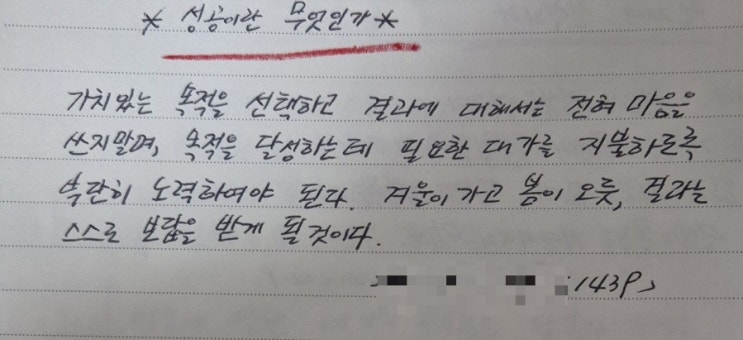 * 성공이란 무엇인가 *
가치있는 목적을 선택하고 결과에 대해서는 전혀 마음을
쓰지말며, 목적을 달성하는데 필요한 대가를 지불하도록
부단히 노력하여야 된다. 겨울이 가고 봄이 오듯, 결과는
스스로 보답을 받게 될것이다.
143P>